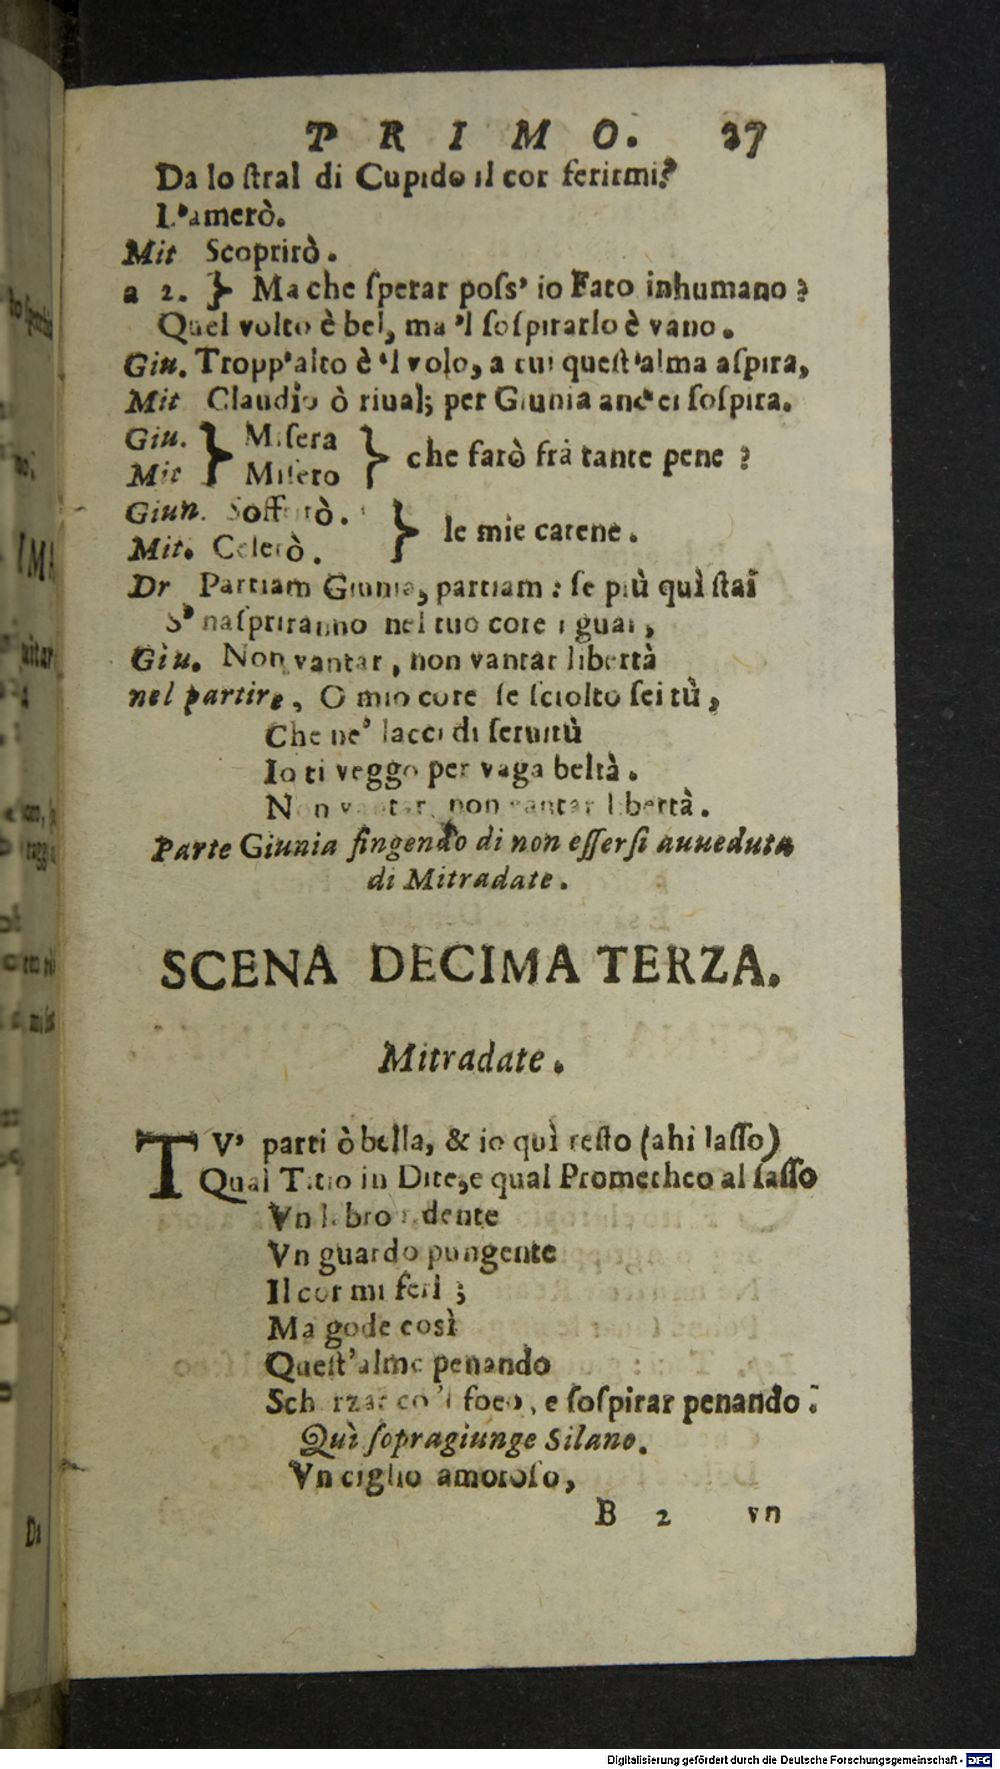 PRIMO. 27
Da lo ſtral di Cupido il cor ferirmi?
L'amerò.
Mit Scoprirò.
a 2. } Ma che ſperar poſs' io Fato inhumano?
Quel volto è bel, ma 'l ſoſpirarlo è vano.
Giu. Tropp'alto è 'l volo, a cui queſt'alma aſpira,
Mit Claudio ò rival; per Giunia anc' ei ſoſpira.
Giu. } Miſera } che farò frà tante pene?
Mit } Miſero
Giun. Soffrirò. } le mie catene.
Mit. Celerò.
Dr Partiam Giunia, partiam: ſe più quì ſtai
S' naſpriranno nel tuo core i guai,
Giu. Non vantar, non vantar libertà
nel partire, O mio core ſe ſciolto ſei tù,
Che ne' lacci di ſeruitù
Io ti veggo per vaga beltà.
Non vantar, non vantar libertà.
Parte Giunia fingendo di non eſſerſi auueduta
di Mitradate.
SCENA DECIMA TERZA.
Mitradate.
TV' parti ò bella, & io quì reſto (ahi laſſo)
Qual Titio in Dite, e qual Prometheo al ſaſſo
Vn labro ridente
Vn guardo pungente
Il cor mi ferì;
Ma gode così
Queſt'alme penando
Scherzar co'l foco, e ſoſpirar penando.
Quì ſopragiunge Silano.
Vn ciglio amoroſo,
B 2 vn
Digitalisierung gefördert durch die Deutsche Forschungsgemeinschaft - DFG